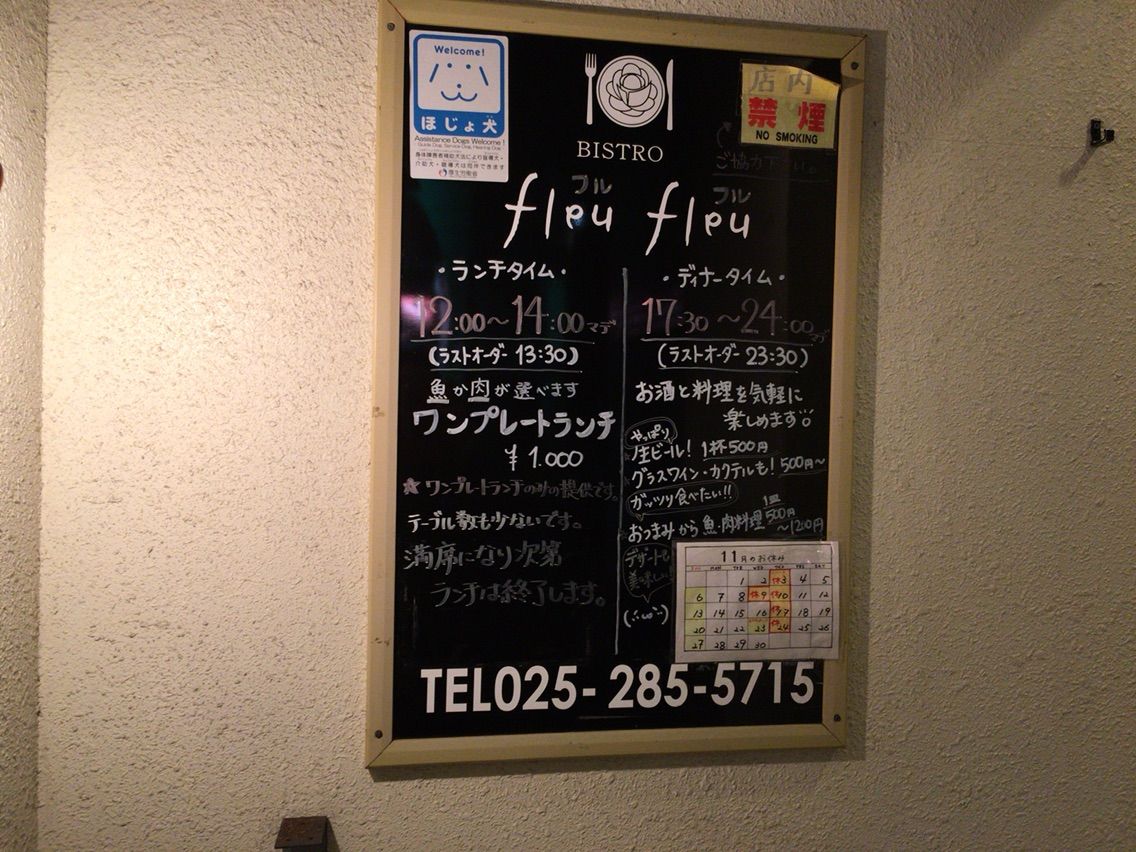 Welcome!
ほじょ犬
Assistance Dogs Welcome!
Guide Dog, Service Dog, Hearing Dog
身体障害者補助犬法により盲導犬・
介助犬・聴導犬は同伴できます
厚生労働省
BISTRO
店内
禁煙
NO SMOKING
ご協力下さい。
フル フル
fleu fleu
・ランチタイム・
12:00〜14:00マデ
(ラストオーダー 13:30)
魚か肉が選べます
ワンプレートランチ
¥1.000
★ワンプレートランチのみの提供です。
テーブル数も少ないです。
満席になり次第
ランチは終了します。
・ディナータイム・
17:30 〜24:00マデ
(ラストオーダー 23:30)
お酒と料理を気軽に
楽しめます
やっぱり
生ビール! 1杯500円
グラスワイン・カクテルも! 500円〜
ガッツリ食べたい!!
おつまみから魚・肉料理 1皿500円
〜1200円
デザートも
美味しい
11月のお休み
SUN MON TUE WED THU FRI SAT
1 2 休3 4 5
6 7 8 休9 休10 11 12
13 14 15 16 休17 18 19
20 21 22 23 休24 25 26
27 28 29 30
TEL025-285-5715